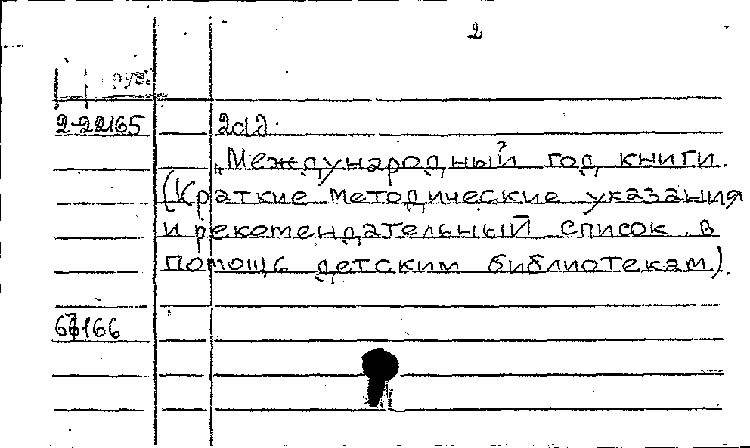 2
руб.
2-22165
„Международный год книги.
(Краткие методические указания
и рекомендательный список в
помощь детским библиотекам).